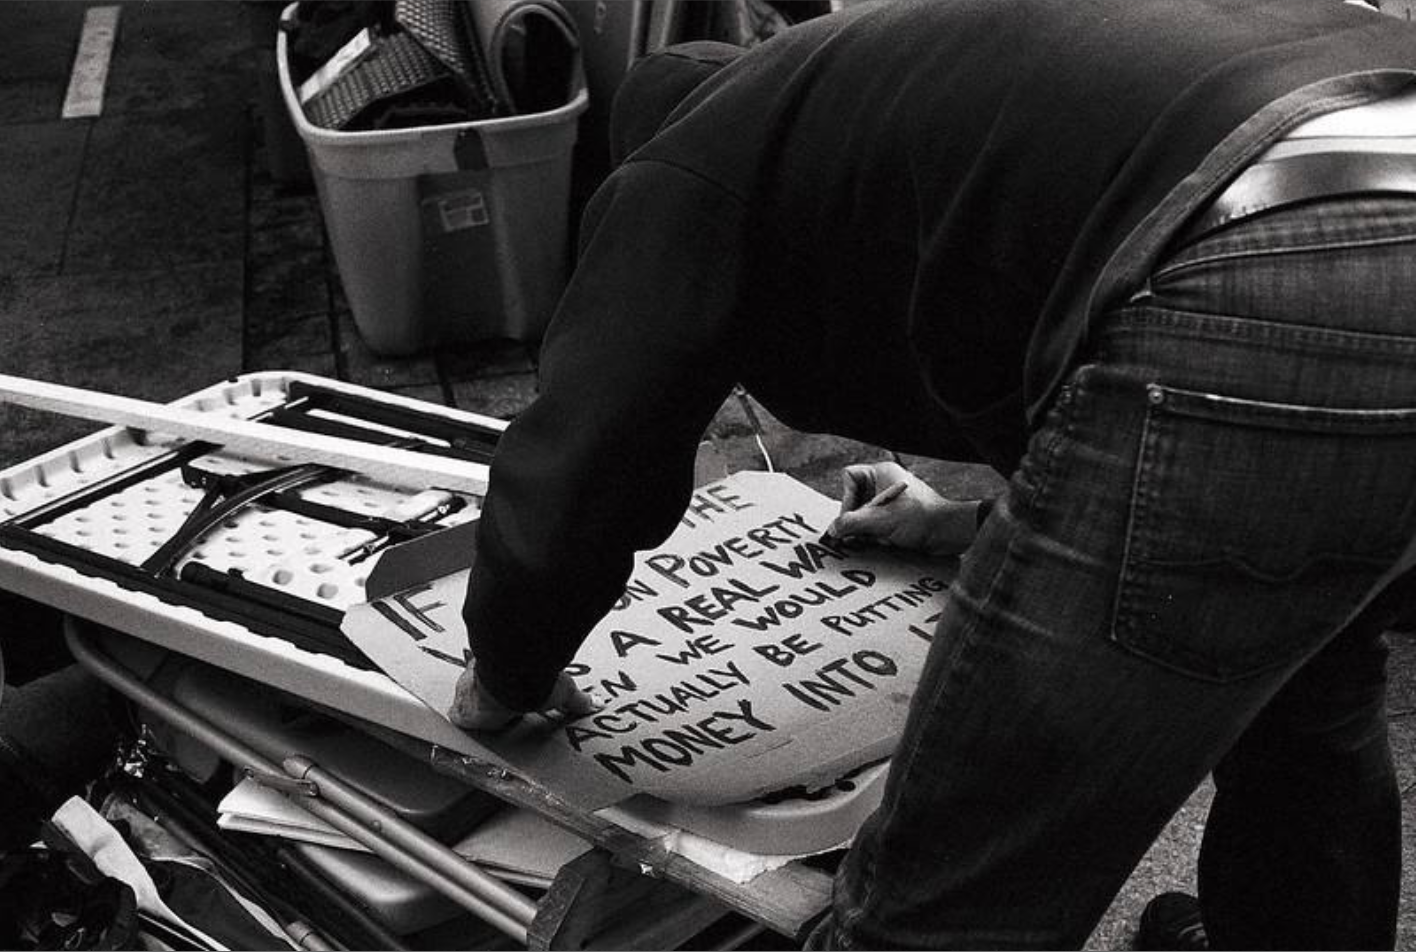 IF THE
ON POVERTY
A REAL WAR
WE WOULD
ACTUALLY BE PUTTING
MONEY INTO